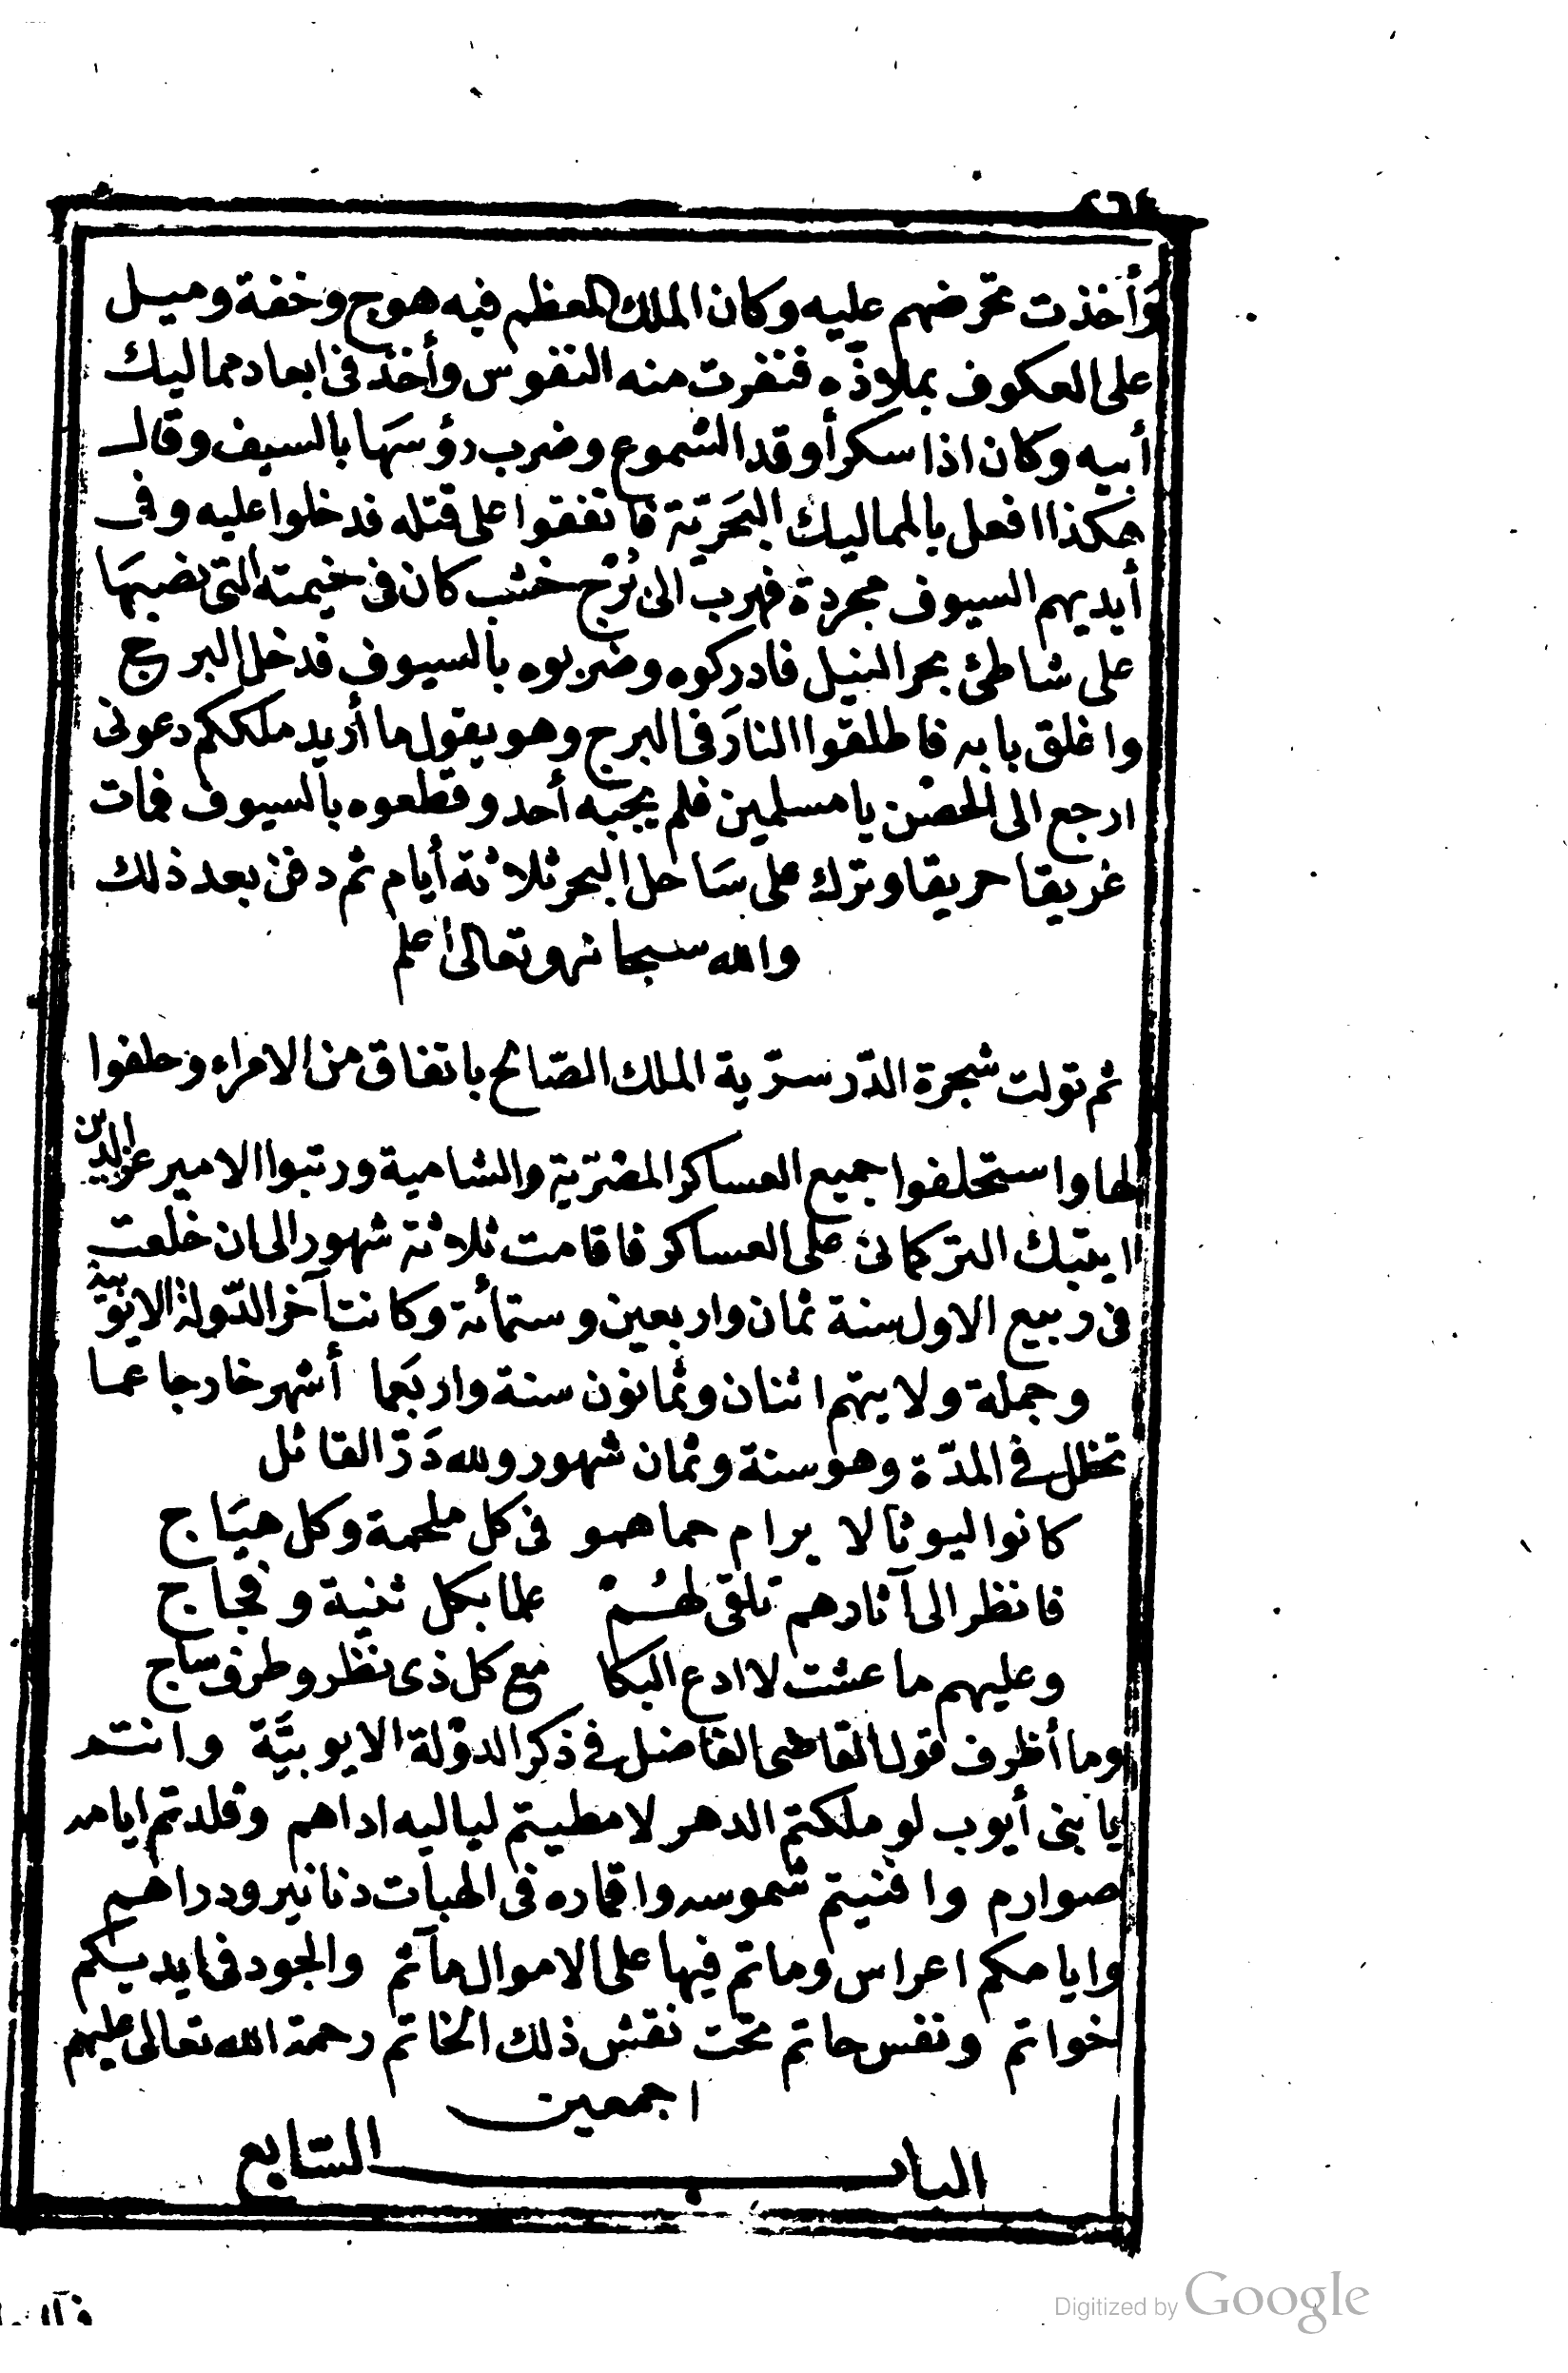 ٢٦٤
وأخذت تحرضهم عليه وكان الملك المعظم فيه هوج وخفة وميل
على العكوف بملاذّه فنفرت منه النفوس وأخذ فى ابعاد مماليك
أبيه وكان اذا سكر أوقد الشموع وضرب رؤسها بالسيف وقال
هكذا افعل بالمماليك البحرية فاتفقوا على قتله فدخلوا عليه وفى
أيديهم السيوف مجردة فهرب الى برج خشب كان فى خيمته التى نصبها
على شاطئ بحر النيل فادركوه وضربوه بالسيوف فدخل البرج
واغلق بابه فاطلقوا النار فى البرج وهو يقول ما أريد ملككم دعونى
ارجع الى الحصن يا مسلمين فلم يجبه أحد وقطعوه بالسيوف فمات
غريقا حريقا وترك على ساحل البحر ثلاثة أيام ثم دفن بعد ذلك
والله سبحانه وتعالى أعلم
ثم تولت شجرة الدّر سرّية الملك الصّالح باتفاق من الامراء وحلفوا
لها واستحلفوا جميع العساكر المصريّة والشامية ورتبوا الامير عز الدين
ايبك التركمانى على العساكر فاقامت ثلاثة شهور الى ان خلعت
فى ربيع الاول سنة ثمان واربعين وستمأئة وكانت آخر الدّولة الايوبية
وجملة ولايتهم اثنان وثمانون سنة واربعما أشهر خارجا عما
تخلل فى المدّة وهو سنة وثمان شهور ولله دَرّ القائل
كانوا ليوثا لا يرام حماهمو فى كل ملحمة وكل هيَاج
فانظر الى آثارهم تلقى لهُم علما بكل ثنية وفجاج
وعليهم ما عشت لا ادع البكا مع كل ذى نظر وطرف ساج
وما أظرف قول القاضى الفاضل فى ذكر الدوّلة الايوبيَّة وانشد
يا بنى أيوب لو ملكتم الدهر لامطيتم لياليه اداهم وقلدتم ايامه
صوارم وافنيتم شموسه واقماره فى الهبات دنانير ودراهم
وايامكم اعراس وماتم فيها على الاموال مآثم والجود فى ايديكم
خواتم ونفس حاتم تحت نقش ذلك الخاتم رحمة الله تعالى عليهم
اجمعين
الباب السّابع
Digitized by Google